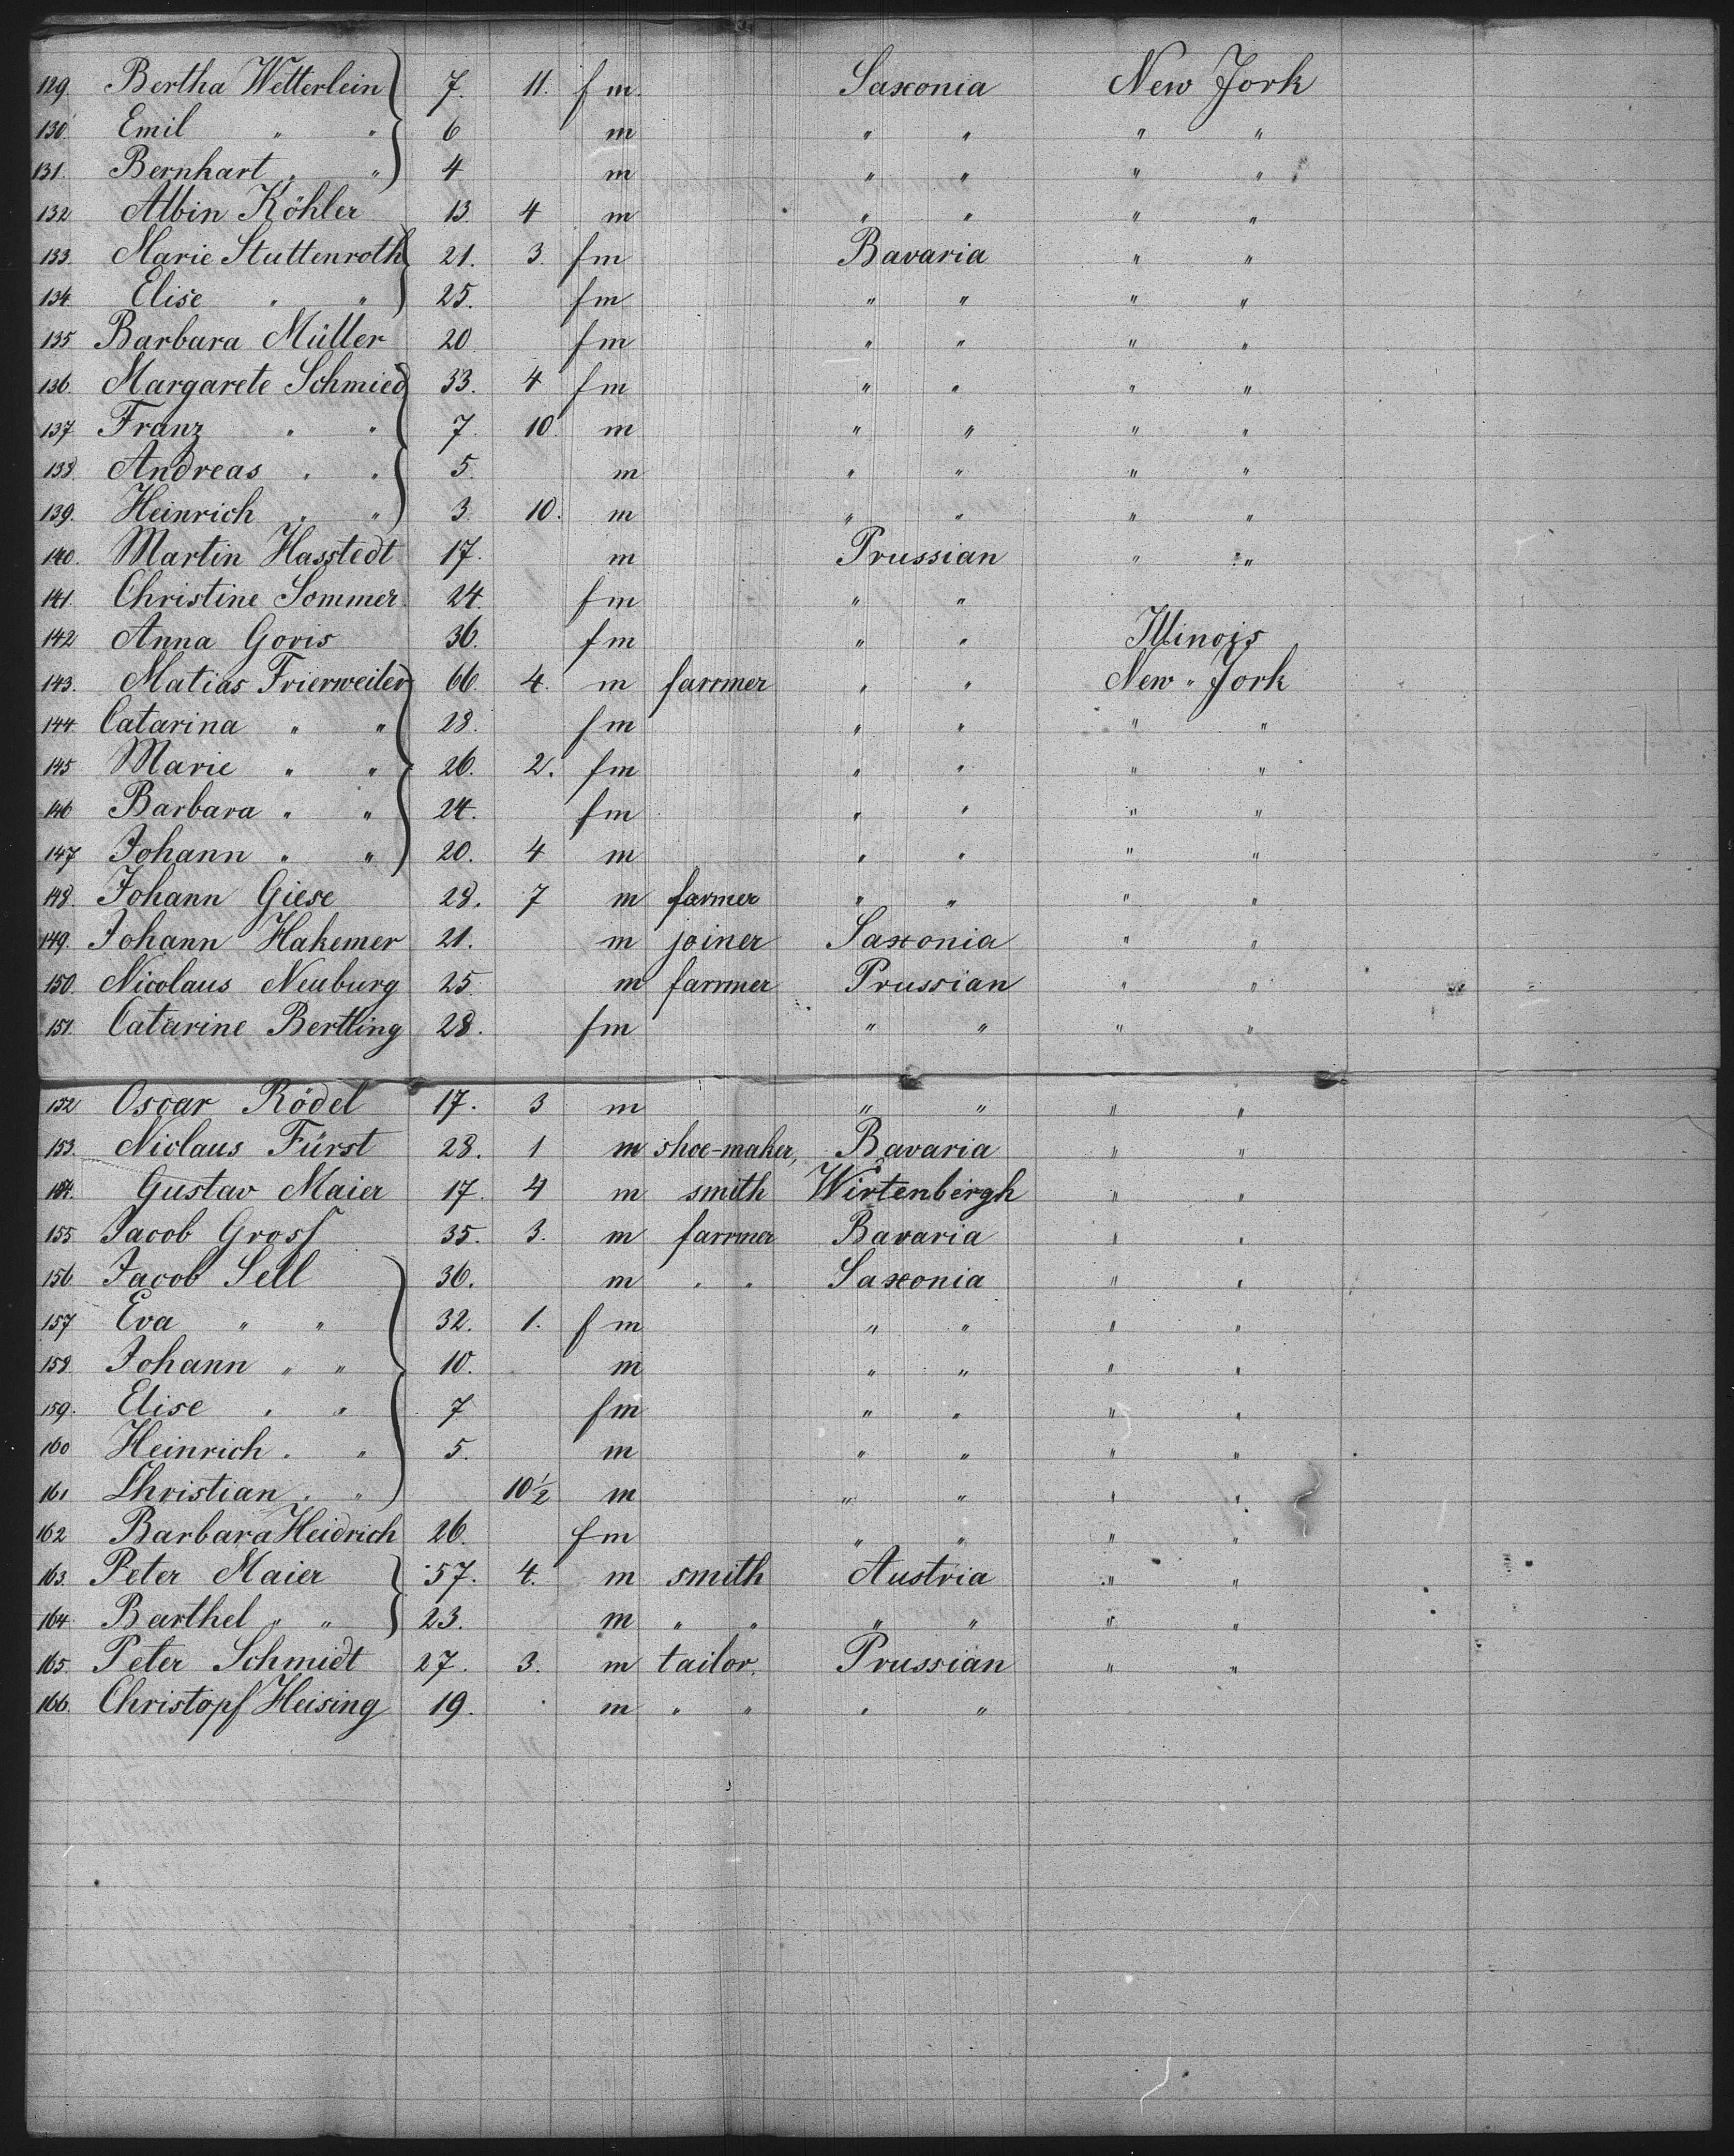 129. Bertha Wetterlein 7. 11. fm. Saxonia New Jork
130. Emil " " 6 m " " " "
131. Bernhart " " 4 m " " " "
132 Albin Köhler 13. 4 m " " " "
133. Marie Stuttenroth 21. 3. fm Bavaria " "
134. Elise " " 25. fm " " " "
135 Barbara Müller 20 fm " " " "
136. Margarete Schmied 33. 4 fm " " " "
137 Franz " " 7. 10. m " " " "
138. Andreas " " 5. m " " " "
139. Heinrich " " 3. 10. m " " " "
140. Martin Hasstedt 17. m Prussian " "
141. Christine Sommer 24. fm " "
142 Anna Goris 36. fm " " Illinois
143. Matias Frierweiler 66. 4. m farmer " " New " Jork
144. Catarina " " 28. fm " " " "
145 Marie " " 26. 2. fm " " " "
146 Barbara " " 24. fm " " " "
147 Johann " " 20. 4 m " " " "
148. Johann Giese 28. 7 m farmer " " " "
149. Johann Hakemer 21. m joiner Saxonia " "
150. Nicolaus Neuburg 25. m farmer Prussian " "
151. Catarine Bertling 28. fm " " " "
152 Oscar Rödel 17. 3 m " " " "
153. Niclaus Fürst 28. 1 m shoe-maker, Bavaria " "
154. Gustav Maier 17. 4 m smith Wirtenbergh " "
155 Jacob Gross 35. 3. m farmer Bavaria " "
156 Jacob Sell 36. m " " Saxonia " "
157 Eva " " 32. 1. fm " " " "
158. Johann " " 10. m " " " "
159. Elise " " 7 fm " " " "
160 Heinrich " " 5. m " " " "
161 Christian " " 10½ m " " " "
162 Barbara Heidrich 26. fm " " " "
163. Peter Maier 57. 4. m smith Austria " "
164. Barthel " " 23. m " " " " " "
165. Peter Schmidt 27. 3. m tailor. Prussian " "
166. Christopf Heising 19. m " " " "